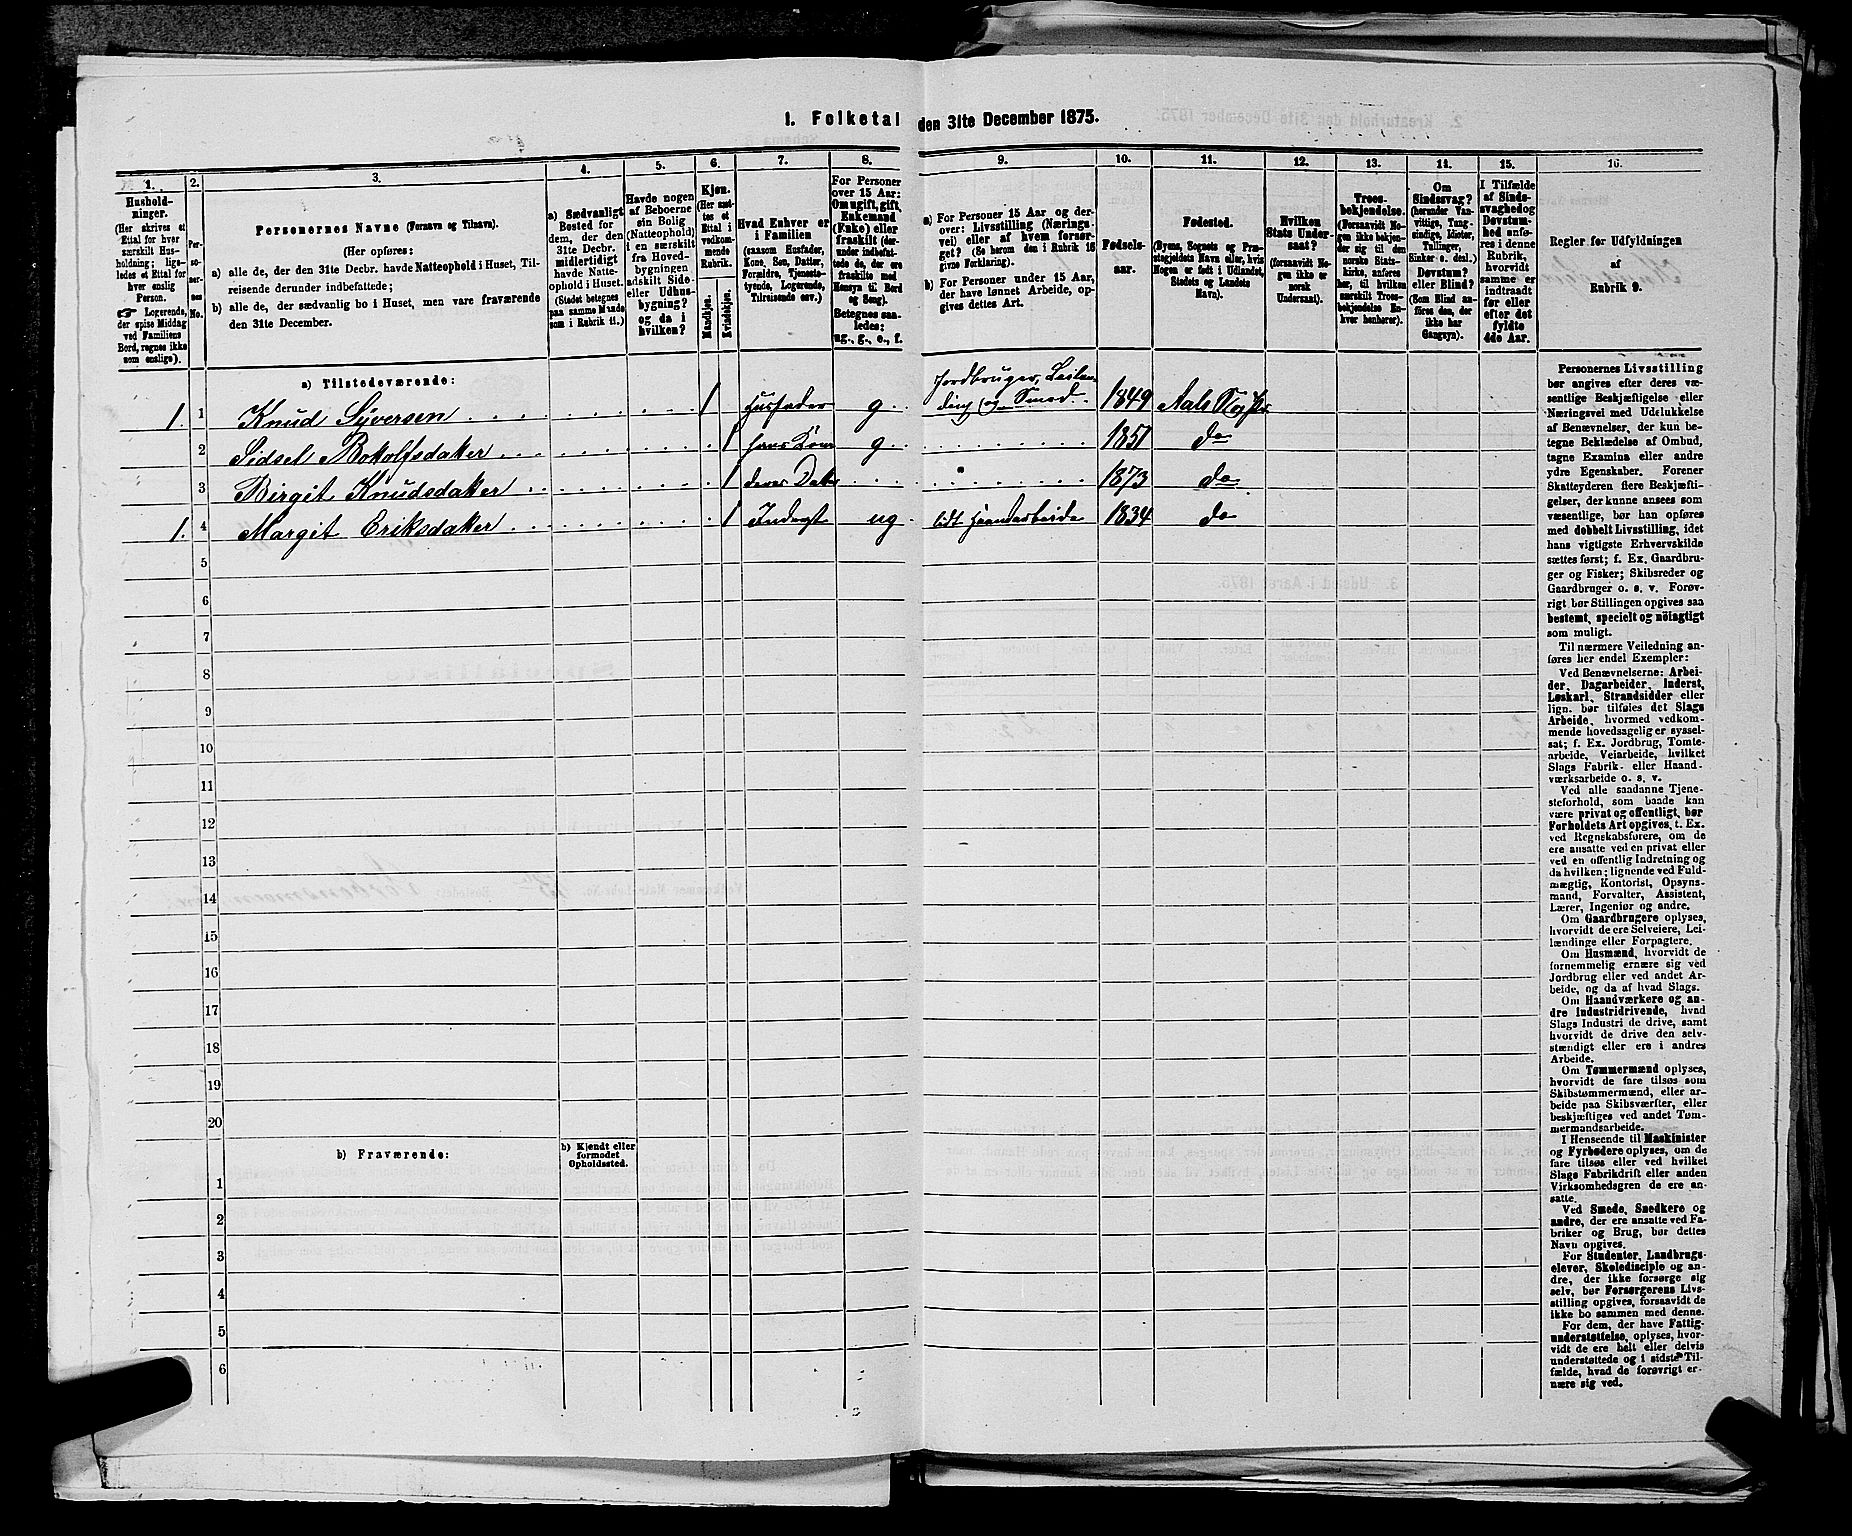 1. Folketal den 31te December 1875.
1.
2.
3.
4.
5.
6.
7.
8.
9.
10.
11.
12.
13.
14.
15.
16.
Hushold-
ninger.
(Her skrives et
Ettal for hver
særskilt Hus-
holdning; lige-
ledes et Ettal for
hver enslig
Person.
☞ Logerende,
der spise Middag
ved Familiens
Bord, regnes ikke
som enslige).
Per-
so-
ner-
nes
No.
Personernes Navne (Fornavn og Tilnavn).
(Her opføres:
a) alle de, der den 31te Decbr. havde Natteophold i Huset, Til-
reisende derunder indbefattede;
b) alle de, der sædvanlig bo i Huset, men vare fraværende
den 31te December.
a) Sædvanligt
Bosted for
dem, der den
31te Decbr.
midlertidigt
havde Natte-
ophold i Huset.
(Stedet betegnes
paa samme Maade
som i Rubrik 11.)
Havde nogen
af Beboerne
sin Bolig
(Natteophold)
i en særskilt
fra Hoved-
bygningen
adskilt Side-
eller Udhus-
bygning?
og da i
hvilken?
Kjøn.
(Her sæt-
tes et
Ettal i
vedkom-
mende
Rubrik.
Mandkjøn.
Kvindekjøn.
Hvad Enhver er
i Familien
(saasom Husfader,
Kone, Søn, Datter,
Forældre, Tjeneste-
tyende, Logerende,
Tilreisende osv.)
For Personer
over 15 Aar:
Om ugift, gift,
Enkemand
(Enke) eller
fraskilt (der-
under indbefat-
tede de, der ere
fraskilte med
Hensyn til Bord
og Seng).
Betegnes saa-
ledes:
ug., g., e., f.
a) For Personer 15 Aar og der-
over: Livsstilling (Nærings-
vei) eller af hvem forsør-
get? (Se herom den i Rubrik 16
givne Forklaring).
b) For Personer under 15 Aar,
der have lønnet Arbeide, op-
gives dettes Art.
Fødsels-
aar.
Fødested.
(Byens, Sognets og Præ-
stegjeldets Navn eller, hvis
Nogen er født i Udlandet,
Stedets og Landets
Navn).
Hvilken
Stats Under-
saat?
(forsaavidt No-
gen ikke er
norsk
Undersaat).
Troes-
bekjendelse.
(Forsaavidt No-
gen ikke bekjen-
der sig til den
norske Stats-
kirke, anføres
her, til hvilken
særskilt Troes-
bekjendelse En-
hver henhører).
Om
Sindssvag?
(herunder Van-
vittige, Tung-
sindige, Idioter,
Tullinger,
Sinker o. desl.)
Døvstum?
eller Blind?
(Som Blind an-
føres den, der
ikke har
Gangsyn).
I Tilfælde
af Sinds-
svaghed og
Døvstum-
hed anfø-
res i denne
Rubrik,
hvorvidt
samme er
indtraadt
før eller
efter det
fyldte
4de Aar.
Regler for Udfyldningen
af
Rubrik 9.
a) Tilstedeværende:
Jordbruger, Leilen-
1. 1 Knud Syversen 1 Husfader g. ding og Smed. 1849 Aals
2 Sidsel Bokolfsdaker 1 hans Kone g. 1851 do
3 Birgit Knudsdaker 1 deres Dater 1873 do
1. 4 Margit Eriksdaker 1 Inderst ug lidt Haandarbeide 1834 do
5
6
7
8
9
10
11
12
13
14
15
16
17
18
19
20
b) Fraværende:
b) Kjendt eller
formodet
Opholdssted.
1
2
3
4
5
6
Personernes Livsstilling
bør angives efter deres væ-
sentlige Beskjæftigelse eller
Næringsvei med Udelukkelse
af Benævnelser, der kun be-
tegne Beklædelse af Ombud,
tagne Examina eller andre
ydre Egenskaber. Forener
Skatteyderen flere Beskjæfti-
gelser, der kunne ansees som
væsentlige, bør han opføres
med dobbelt Livsstilling, idet
hans vigtigste Erhvervskilde
sættes først; f. Ex. Gaardbru-
ger og Fisker; Skibsreder og
Gaardbruger o. s. v. Forøv-
rigt bør Stillingen opgives saa
bestemt, specielt og nöiagtigt
som muligt.
Til nærmere Veiledning an-
føres her endel Exempler:
Ved Benævnelserne: Arbei-
der, Dagarbeider, Inderst,
Løskarl, Strandsidder eller
lign. bør tilføies det Slags
Arbeide, hvormed vedkom-
mende hovedsagelig er syssel-
sat; f. Ex. Jordbrug, Tomte-
arbeide, Veiarbeide, hvilket
Slags Fabrik- eller Haand-
værksarbeide o. s. v.
Ved alle saadanne Tjene-
steforhold, som baade kan
være privat og offentligt, bør
Forholdets Art opgives, t. Ex.
ved Regnskabsførere, om de
ere ansatte ved en privat eller
ved en offentlig Indretning og
da hvilken; lignende ved Fuld-
mægtig, Kontorist, Opsyns-
mand, Forvalter, Assistent,
Lærer, Ingeniør og andre.
Om Gaardbrugere oplyses,
hvorvidt de ere Selveiere, Lei-
lændinge eller Forpagtere.
Om Husmænd, hvorvidt de
fornemmelig ernære sig ved
Jordbrug eller ved andet Ar-
beide, og da af hvad Slags.
Om Haandværkere og an-
dre industridrivende, hvad
Slags Industri de drive, samt
hvorvidt de drive den selv-
stændigt eller ere i andres
Arbeide.
Om Tømmermænd oplyses,
hvorvidt de fare tilsøs som
Skibstømmermænd, eller ar-
beide paa Skibsværfter, eller
beskjæftiges ved andet Tøm-
mermandsarbeide.
I Henseende til Maskinister
og Fyrbødere oplyses, om de
fare tilsøs eller ved hvilket
Slags Fabrikdrift eller anden
Virksomhedsgren de ere an-
satte.
Ved Smede, Snedkere og
andre, der ere ansatte ved Fa-
briker og Brug, bør dettes
Navn opgives.
For Studenter, Landbrugs-
elever, Skoledisciple og an-
dre, der ikke forsørge sig
selv, bør Forsørgerens Livs-
stilling opgives, forsaavidt de
ikke bo sammen med denne.
For dem, der have Fattig-
understøttelse, oplyses, hvor-
vidt de ere helt eller delvis
understøttede og i sidste Til-
fælde, hvad de forøvrigt er-
nære sig ved.